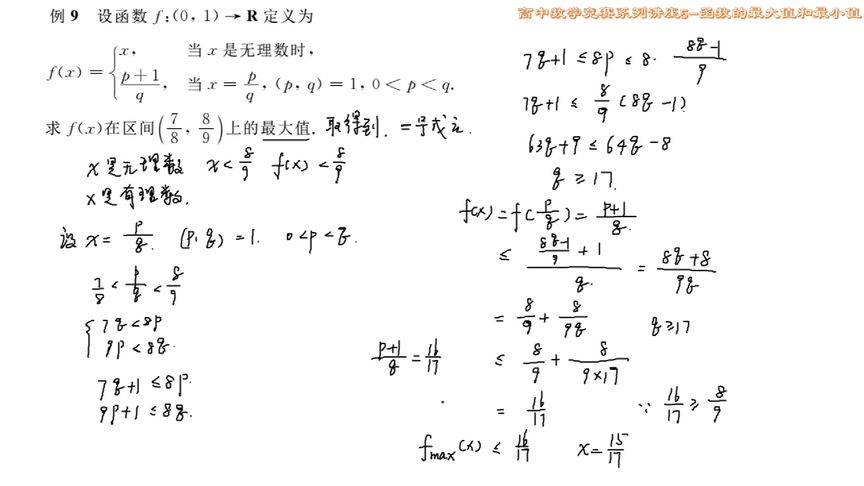 高中数学竞赛系列讲座5-函数的最大值和最小值
例 9 设函数 f:(0, 1)→R 定义为
f(x) = { x, 当 x 是无理数时,
(p+1)/q, 当 x = p/q, (p, q) = 1, 0 < p < q.
求 f(x)在区间(7/8, 8/9)上的最大值. 取得到. =号成立.
x是无理数 x < 8/9 f(x) < 8/9
x是有理数.
设 x = p/q. (p, q) = 1. 0<p<q.
7/8 < p/q < 8/9
{ 7q < 8p
9p < 8q.
7q+1 ≤ 8p.
9p+1 ≤ 8q.
7q+1 ≤ 8p ≤ 8 · (8q-1)/9
7q+1 ≤ 8/9 (8q-1)
63q+9 ≤ 64q-8
q ≥ 17.
f(x) = f(p/q) = (p+1)/q.
≤ ((8q-1)/9 + 1)/q. = (8q+8)/9q
= 8/9 + 8/9q q≥17
(p+1)/q = 16/17
≤ 8/9 + 8/(9×17)
= 16/17 ∵ 16/17 ≥ 8/9
fmax(x) ≤ 16/17 x = 15/17